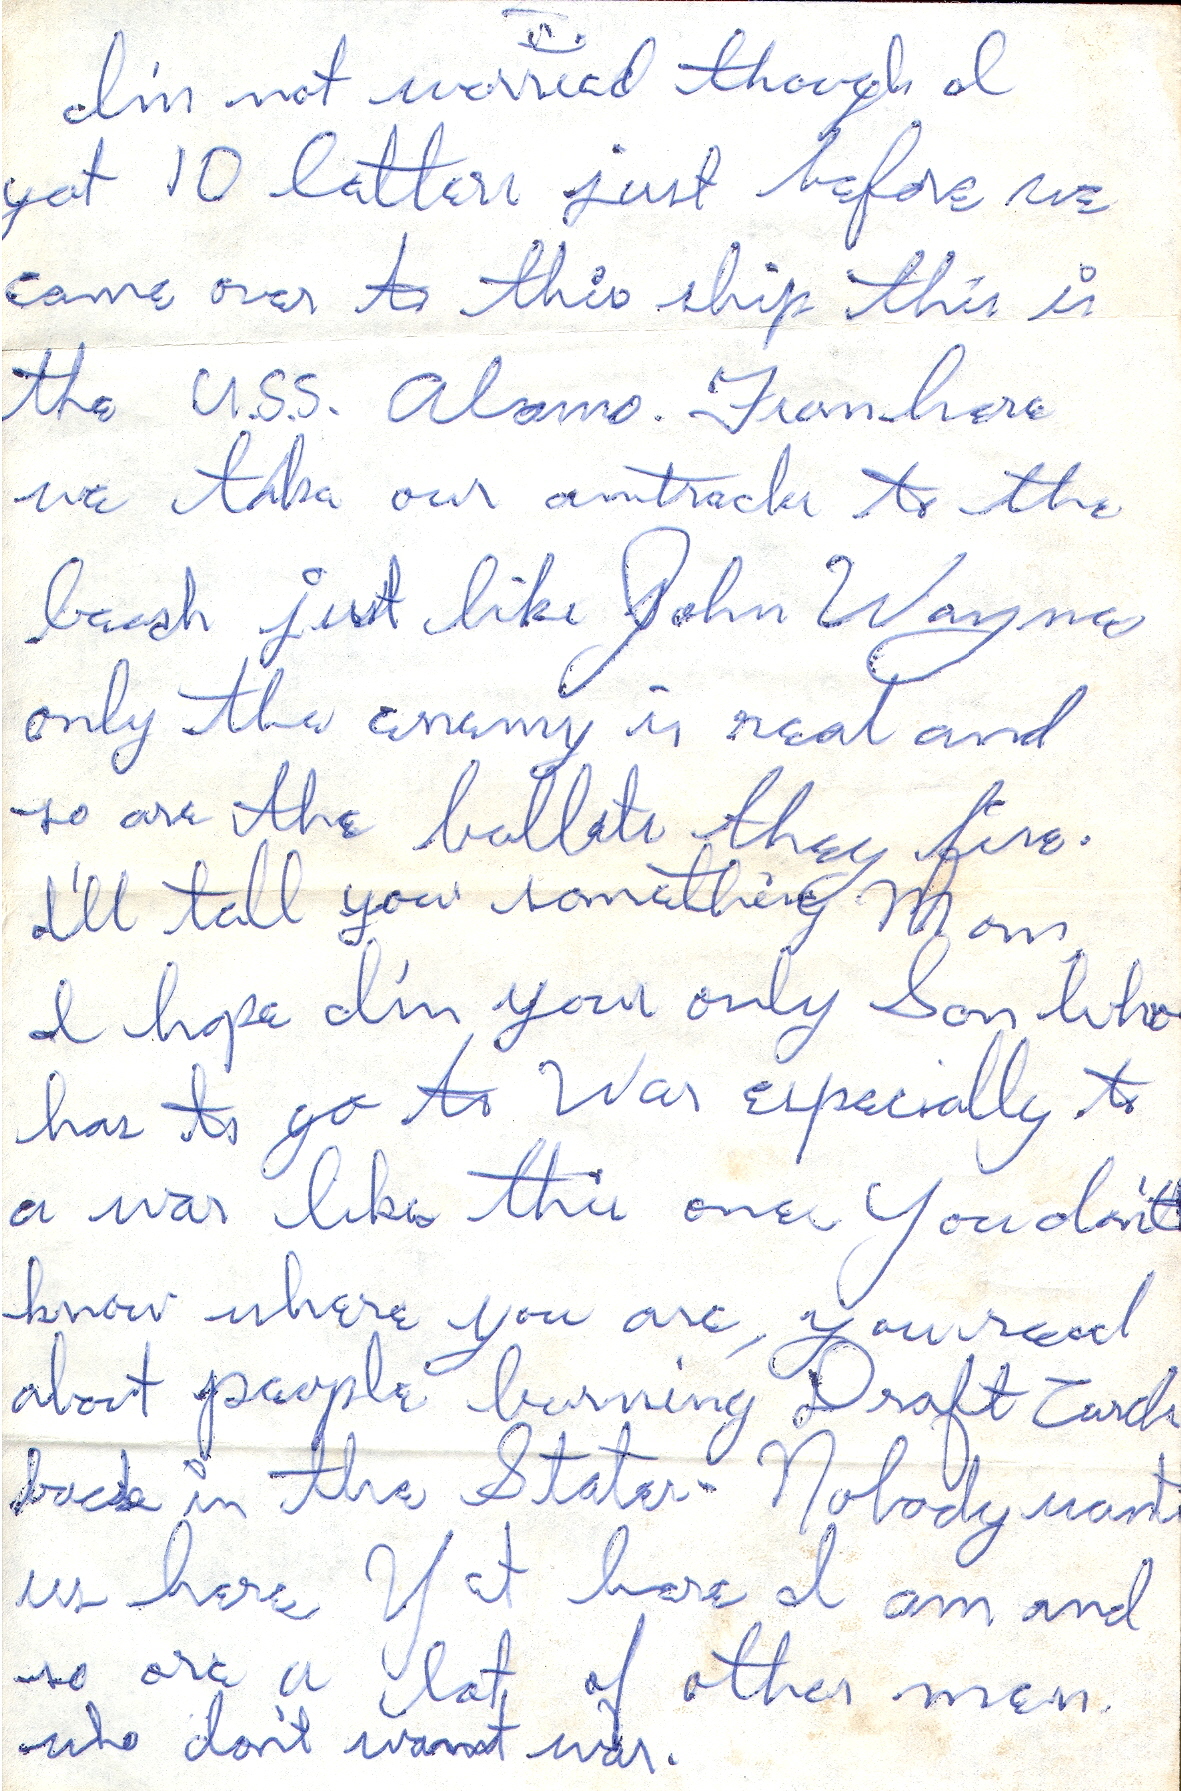 I'm not worried though I
got 10 letters just before we
came over to this ship this is
the U.S.S. Alamo. From here
we take our amtracks to the
beach just like John Waynes
only the enemy is real and
so are the bullets they fire.
I'll tell you something Mom
I hope I'm your only Son who
has to go to War especially to
a war like this one. You don't
know where you are, you read
about people burning Draft Cards
back in the States. Nobody wants
us here Yet here I am and
so are a lot of other men.
who don't want war.